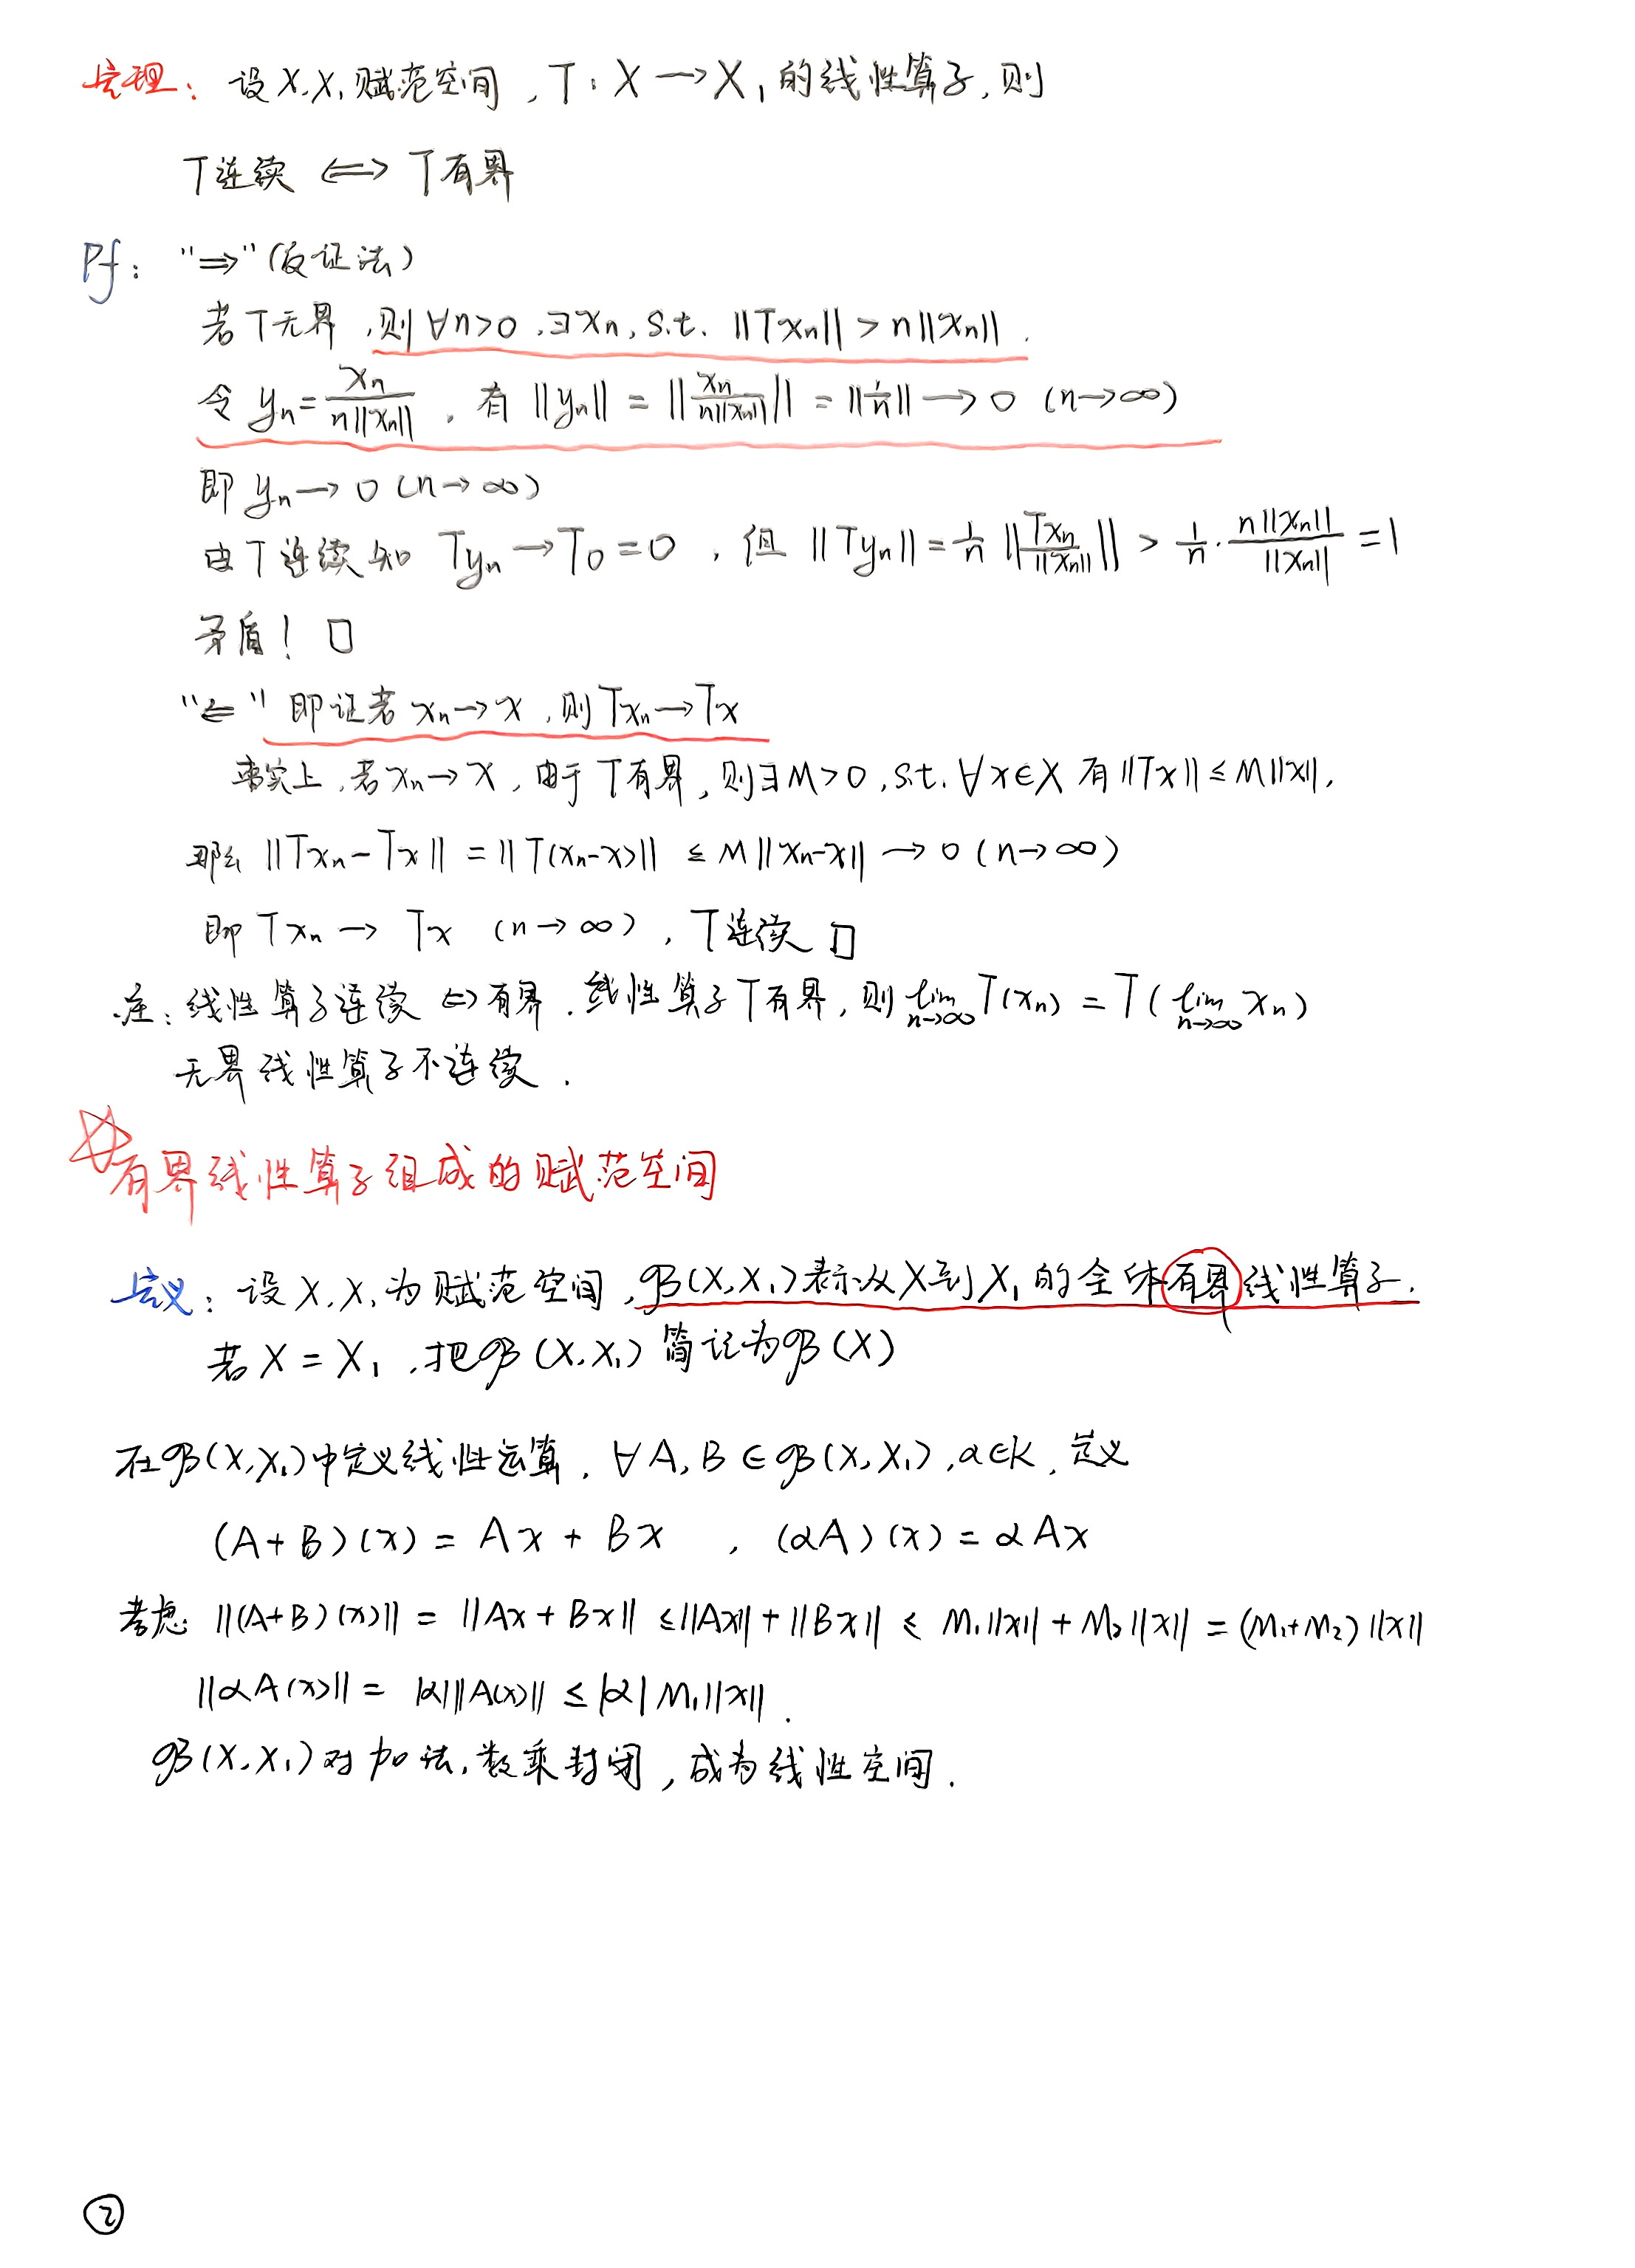 定理：设X,X₁赋范空间，T：X→X₁的线性算子，则
T连续 ⟺ T有界
Pf： "⇒"(反证法)
若T无界，则∀n>0，∃xₙ，s.t. ||Txₙ|| > n||xₙ||.
令 yₙ = xₙ/(n||xₙ||)，有 ||yₙ|| = ||xₙ/(n||xₙ||)|| = ||1/n|| → 0 (n→∞)
即 yₙ → 0 (n→∞)
由T连续知 Tyₙ → T0 = 0，但 ||Tyₙ|| = 1/n ||Txₙ/||xₙ|||| > 1/n · n||xₙ||/||xₙ|| = 1
矛盾！□
"⇐" 即证若 xₙ→x，则Txₙ→Tx
事实上，若xₙ→x，由于T有界，则∃M>0，s.t. ∀x∈X 有||Tx|| ≤ M||x||，
那么 ||Txₙ-Tx|| = ||T(xₙ-x)|| ≤ M||xₙ-x|| → 0 (n→∞)
即 Txₙ → Tx (n→∞)，T连续 □
注：线性算子连续 ⇔ 有界．线性算子T有界，则 lim_{n→∞} T(xₙ) = T(lim_{n→∞} xₙ)
无界线性算子不连续．
☆有界线性算子组成的赋范空间
定义：设X,X₁为赋范空间，ℬ(X,X₁)表示从X到X₁的全体有界线性算子．
若X = X₁，把ℬ(X,X₁)简记为ℬ(X)
在ℬ(X,X₁)中定义线性运算，∀A,B∈ℬ(X,X₁)，α∈K，定义
(A+B)(x) = Ax + Bx ，(αA)(x) = αAx
考虑：||(A+B)(x)|| = ||Ax+Bx|| ≤ ||Ax||+||Bx|| ≤ M₁||x|| + M₂||x|| = (M₁+M₂)||x||
||αA(x)|| = |α|||A(x)|| ≤ |α|M₁||x||．
ℬ(X,X₁)对加法，数乘封闭，成为线性空间．
②